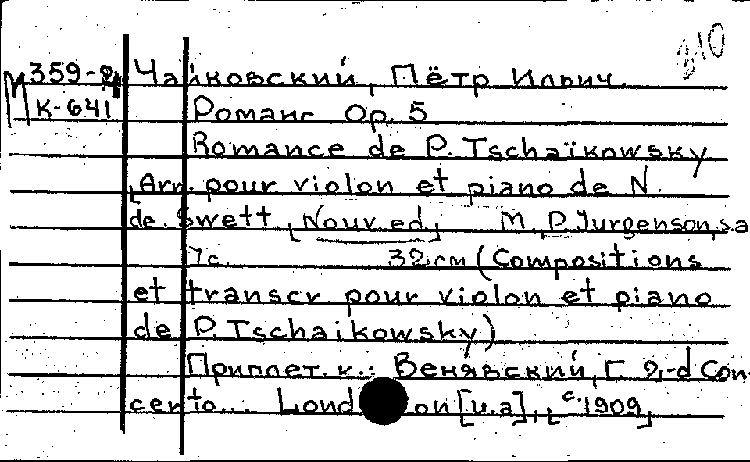 310
М 359-2 Чайковский, Пётр Ильич.
К-641 Романс Op. 5
Romance de P. Tschaïkowsky
[Arr. pour violon et piano de N.
de Swett [Nouv. ed] M, P. Jurgenson, s.a
7 с. 32 см (Compositions
et transcr pour violon et piano
de P. Tschaikowsky)
Приплет. к.: Венявский, Г 2-d Con-
certo... London [u.a], [c.1909]